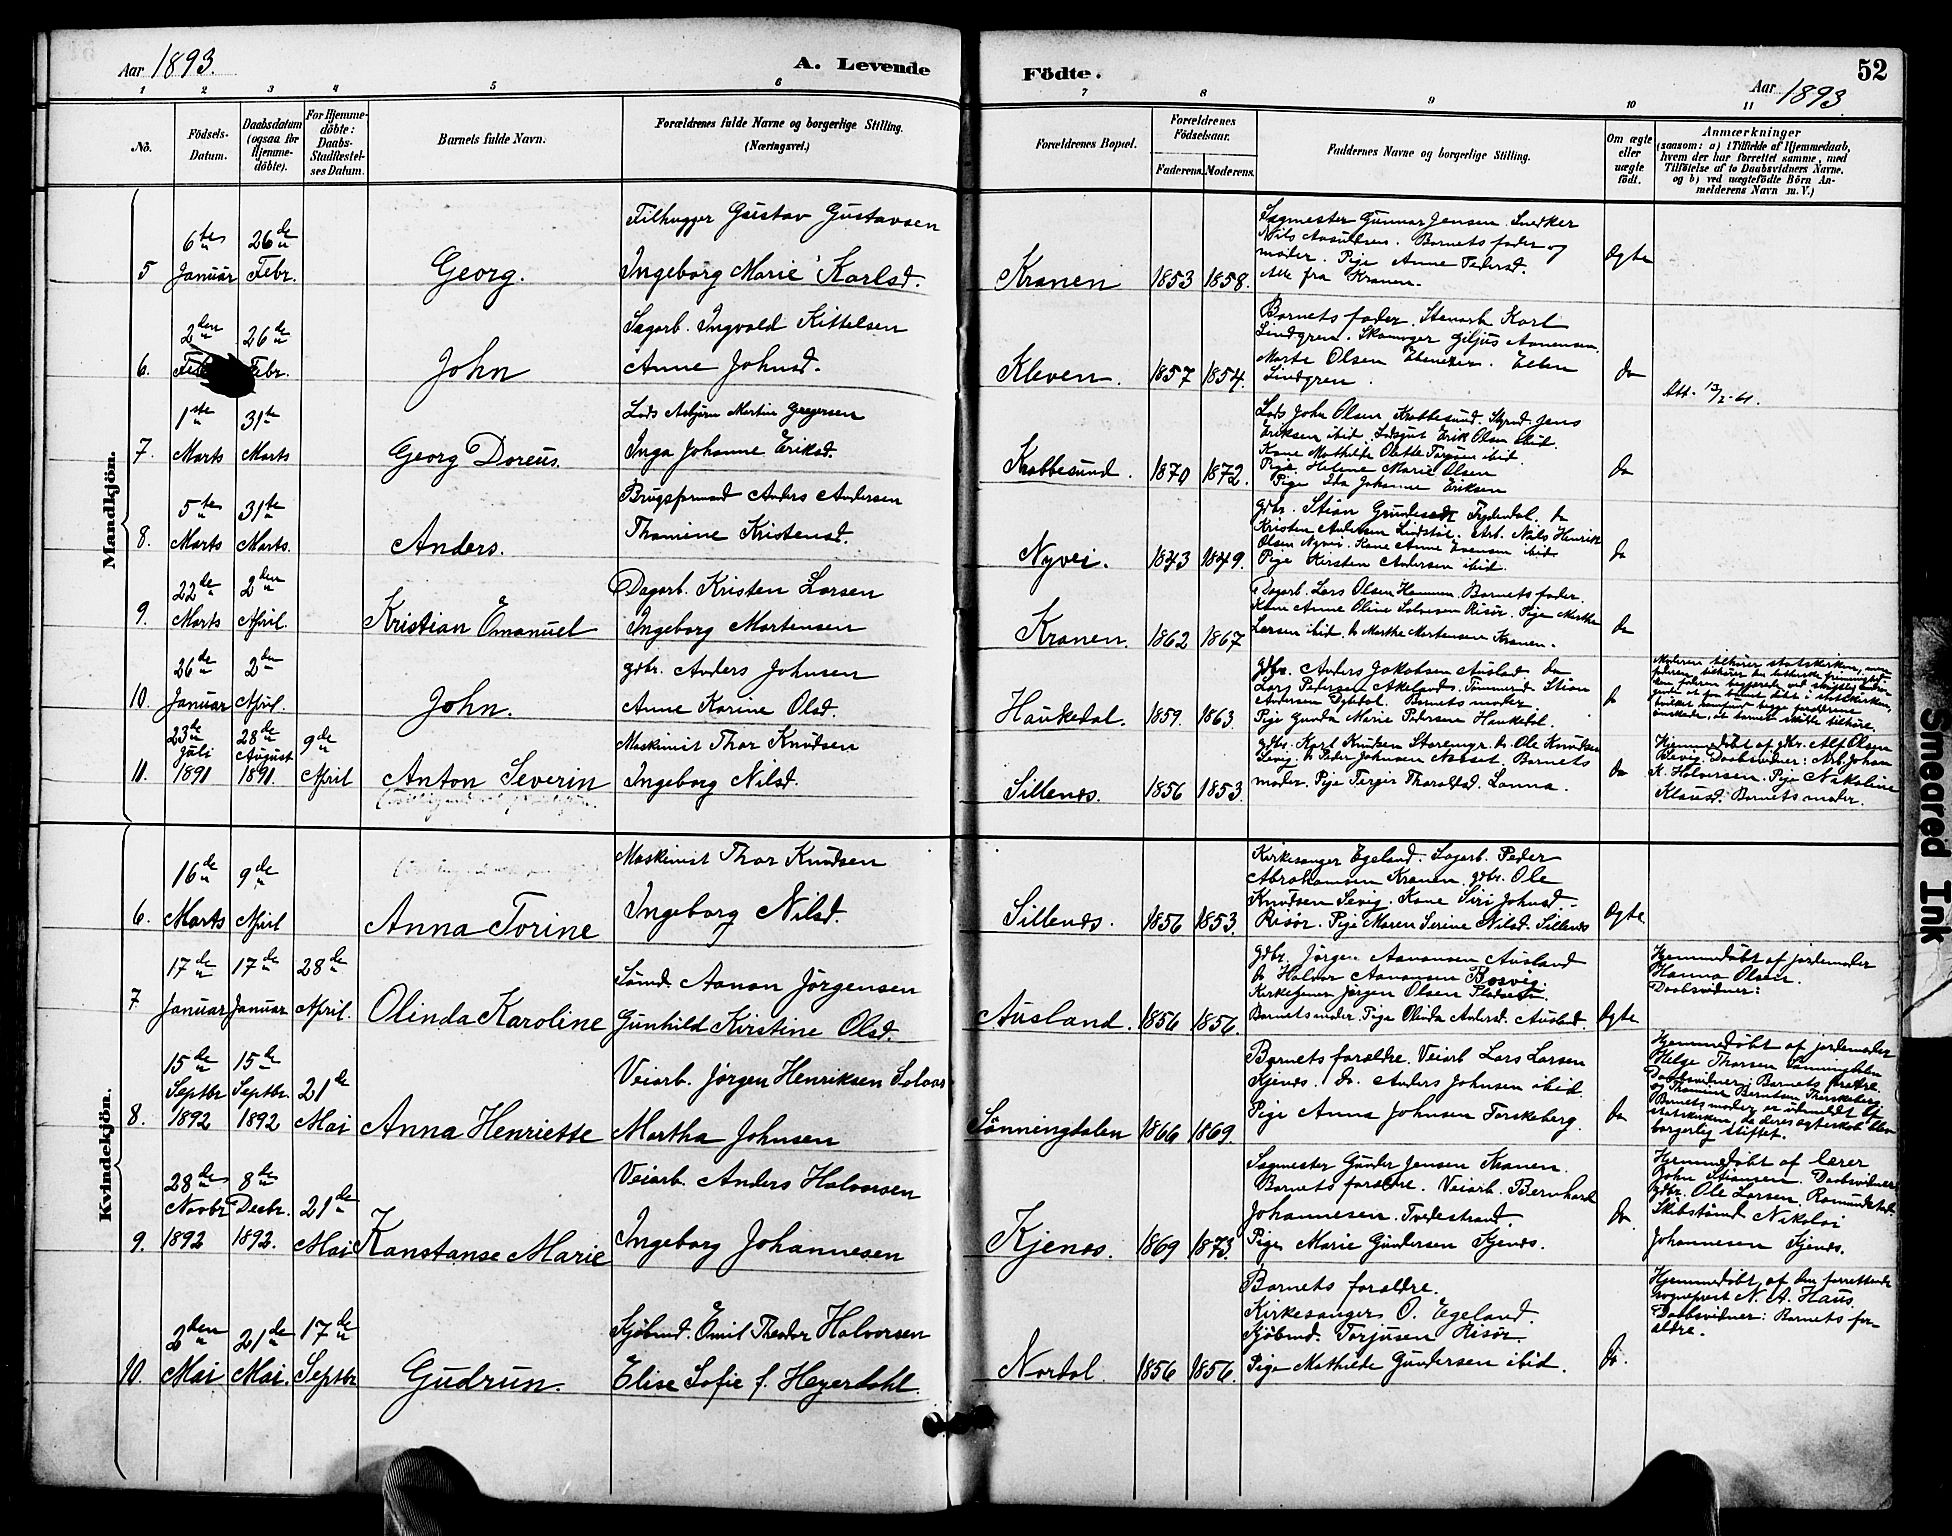 Aar 1893.
A. Levende
Fødte.
52
Aar 1893
1 2 3 4 5 6 7 8 9 10 11
No.
Fødsels-
Datum.
Daabsdatum
(ogsaa for
Hjemme-
døbte).
For Hjemme-
døbte:
Daabs-
Stadfæstel-
ses Datum.
Barnets fulde Navn.
Forældrenes fulde Navne og borgerlige Stilling.
(Næringsvei.)
Forældrenes Bopæl.
Forældrenes
Fødselsaar.
Faderens. Moderens.
Faddernes Navne og borgerlige Stilling.
Om ægte
eller
uægte
født.
Anmærkninger
(saasom: a) i Tilfælde af Hjemmedaab,
hvem der har forrettet samme, med
Tilføielse af to Daabsvidners Navne.
og b) ved uægtefødte Børn An-
melderens Navn m. V.)
Mandkjøn.
5
6te
Januar
26de
Febr.
Georg.
Tilhugger Gustav Gustavsen
Ingeborg Marie Karlsd.
Kranen
1853 1858.
Sagmester Gunnar Jensen. Snedker
Nils Barnets fader og
moder. Pige Anne Pedersd.
Alle fra Kranen.
Ægte
6.
2den
26de
Febr.
John
Sagarb. Ingvald Kittelsen
Anne Johnsd.
Kleven.
1857 1854.
Barnets fader. Stenarb. Karl
Lindgren. Skomager Giljus Aanensen.
Marte Olsen Ebenezer. Ellen
Lindgren.
do
Att. 13/2-61.
7.
1ste
Marts
31te
Marts
Georg Doreus.
Lods Asbjørn Martin Gregersen
Inga Johanne Eriksd.
Krabbesund.
1870 1872.
Lods John Olsen Krabbesund. Styrmd. Jens
Eriksen ibid. Lodsgut Erik Olsen ibid.
Kone Mathilde Olette ibid.
Pige Helene Marie Olsen
Pige Ida Johanne Eriksen
do
8.
5te
Marts
31te
Marts.
Anders.
Brugsformand Anders Andersen
Thomine Kristensd.
Nyvei.
1843 1849.
Gdbr. Stian do
Kristen Andersen Lindstøl. Arb. Nils Henrik
Olsen Nyvei. Kone Anne ibid
Pige Kirsten Andersen ibid.
do
9.
22de
Marts
2den
April
Kristian Emanuel
Dagarb. Kristen Larsen
Ingeborg Mortensen
Kranen.
1862 1867
Dagarb. Lars Olsen Barnets fader.
Kone Anne Oline Risør. Pige Marthe
Larsen ibid. do Marthe Mortensen Kranen.
do
10.
26de
Januar
2den
April.
John.
Gdbr. Anders Johnsen
Anne Karine Olsd.
Haukedal.
1859. 1863
Gdbr. Anders Jakobsen Ausland do
Lars Pedersen Akeland. Tømmermd. Stian
Andersen Barnets moder.
Pige Gunda Marie Pedersen Haukedal.
do
Moderen tilhører statskirken, men
11.
23de
Juli
1891
28de
August
1891.
9de
April
Anton Severin
Maskinist Thor Knudsen
Ingeborg Nilsd.
Sillenæs.
1856 1853
Gdbr. Karl Knudsen Storemyr. do Ole Knudsen
Levig. do Peder Johnsen Næset. Barnets
moder. Pige Tergir Tharaldsd. Lonna.
do
Hjemmedøbt af gbr. Alf Olsen
Bevig. Daabsvidner: Arb. Johan
K. Halvorsen. Pige Nikoline
Klausd. Barnets moder.
Kvindekjøn.
6.
16de
Marts
9de
April
Anna Torine
Maskinist Thor Knudsen
Ingeborg Nilsd.
Sillenæs.
1856 1853.
Kirkesanger Egeland. Sagarb. Peder
Abrahamsen Kranen. Gdbr. Ole
Knudsen Levig. Kone Siri Johnsd.
Risør. Pige Maren Serine Nilsd. Sillenæs
Ægte
7
17de
Januar
17de
Januar
28de
April.
Olinda Karoline
Sømd. Aanon Jørgensen
Gunhild Kirstine Olsd.
Ausland.
1856 1856.
Gdbr. Jørgen Aanonsen Ausland
do Halvor Aanonsen Bosvig.
Kirketjener Jørgen Olsen
Barnets moder. Pige Olinda Andersd. Ausland.
Ægte
Hjemmedøbt af jordemoder
Hanna Olsen.
Daabsvidner:
8.
15de
Septbr
1892
15de
Septbr.
1892
21de
Mai
Anna Henriette
Veiarb. Jørgen Henriksen
Martha Johnsen
Sønningdalen
1866 1869
Barnets forældre. Veiarb Lars Larsen
Kjenæs. do. Anders Johnsen ibid.
Pige Anna Johnsen Torskeberg.
do
Hjemmedøbt af jordemoder
Helge Thorsen Sønningdalen
Daabsvidner: Barnets forældre
og Thomine Berntsen Thorskeberg
Barnets moder er udmeldt af
statskirken, da deres ægteskab blev
borgerlig stiftet.
9.
28de
Novbr
1892
8de
Decbr.
1892.
21de
Mai
Konstanse Marie
Veiarb. Anders Halvorsen
Ingeborg Johannesen
Kjenæs.
1869 1873.
Sagmester Gunder Jensen Kranen.
Barnets forældre. Veiarb. Bernhard
Johannesen. Tvedestrand.
Pige Marie Gundersen Kjenæs.
do.
Hjemmedøbt af lærer
John Stiansen. Daabsvidner
Gdbr. Ole Larsen Romundstad.
Skibstømd. Nikolai
Johannesen Kjenæs.
10.
2den
Mai
21de
Mai.
17de
Septbr
Gudrun.
Kjøbmd. Emil Theodor Halvorsen
Elise Sofie f. Heyerdahl.
Nordal.
1856 1856.
Barnets forældre.
Kirkesanger O. Egeland.
Kjøbmd. Torjusen Risør.
Pige Mathilde Gundersen ibid.
do.
Hjemmedøbt af den forrettende
sogneprest N. A. Haus.
Daabsvidner: Barnets for-
ældre.
Smeared Ink